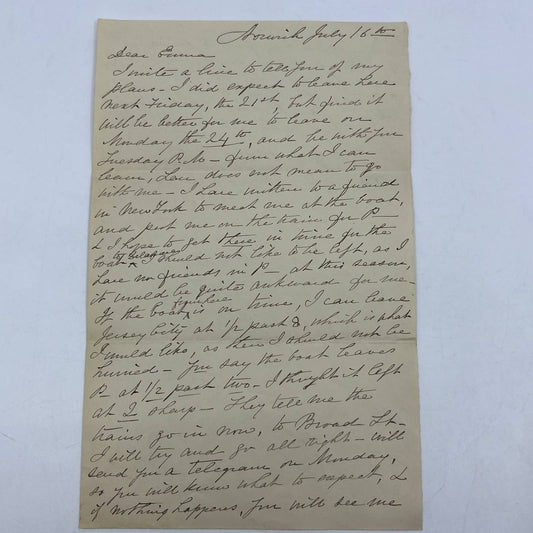 Norwich July 16th
Dear Emma
I write a line to tell you of my
plans – I did expect to leave here
next Friday, the 21st, but find it
will be better for me to leave on
Monday the 24th, and be with you
Tuesday P.M – from what I can
learn, Lou does not mean to go
with me – I have written to a friend
in New York to meet me at the boat,
and put me on the train for P –
& I hope to get there in time for the
boat to I should not like to be left, as I
have no friends in P – at this season,
it would be quite awkward for me –
If the boat from here is on time, I can leave
Jersey City at 1/2 past 8, which is what
I would like, as then I should not be
hurried – You say the boat leaves
P – at 1/2 past two – I thought it left
at 2 sharp – They tell me the
trains go in now, to Broad St –
I will try and go all right – will
send you a telegram on Monday,
so you will know what to expect, &
if nothing happens, you will see me